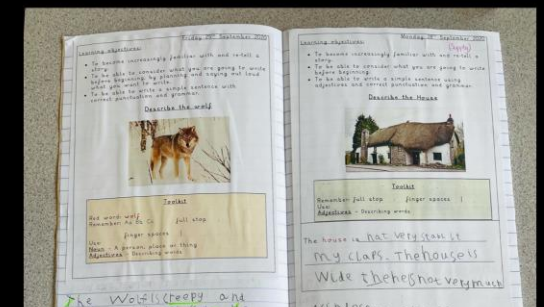 Friday 25th September 2020
Learning objectives:
To become increasingly familiar with and re-tell a
story.
To be able to consider what you are going to write
before beginning by planning and saying out loud
what you want to write.
To be able to write a simple sentence with
correct punctuation and grammar.
Describe the wolf
Toolkit
Red word: wolf
Remember: Aa Bb Cc full stop
finger spaces
Use:
Noun - A person, place or thing
Adjectives - Describing words
The Wolf is creepy and
Monday 28th September 2020
Learning objectives:
To become increasingly familiar with and re-tell a
story.
To be able to consider what you are going to write
before beginning.
To be able to write a simple sentence using
adjectives and correct punctuation and grammar.
Describe the House
Toolkit
Remember: full stop finger spaces
Use:
Adjectives - Describing words
The house is not very stabl it
my claps. The house is
Wide the he s not very much